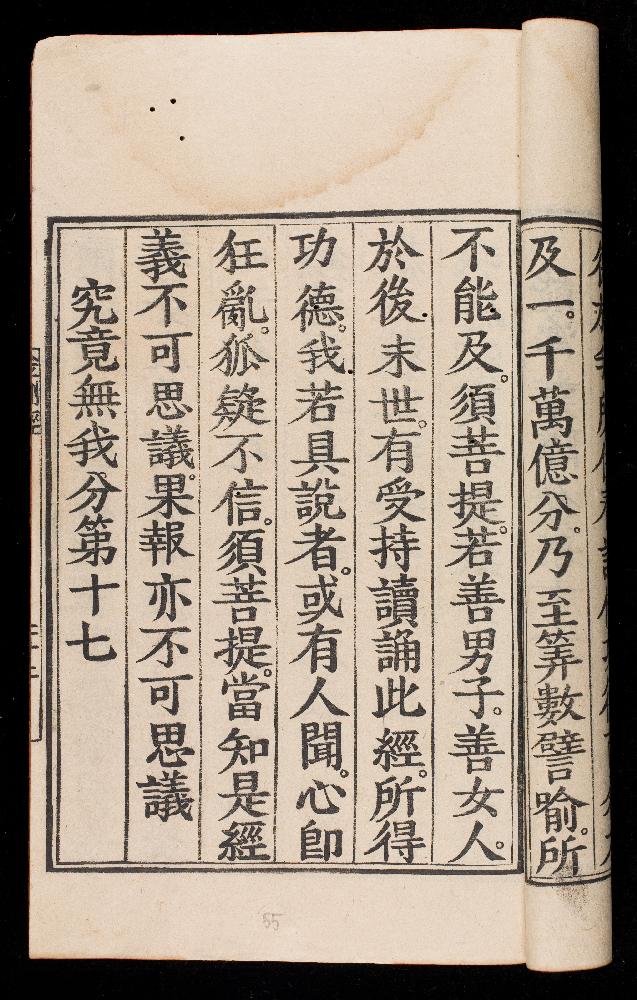 及一。千萬億分。乃至筭數譬喻。所
不能及。須菩提。若善男子。善女人。
於後末世。有受持讀誦此經。所得
功德。我若具說者。或有人聞。心卽
狂亂。狐疑不信。須菩提。當知是經
義不可思議。果報亦不可思議
究竟無我分第十七
55